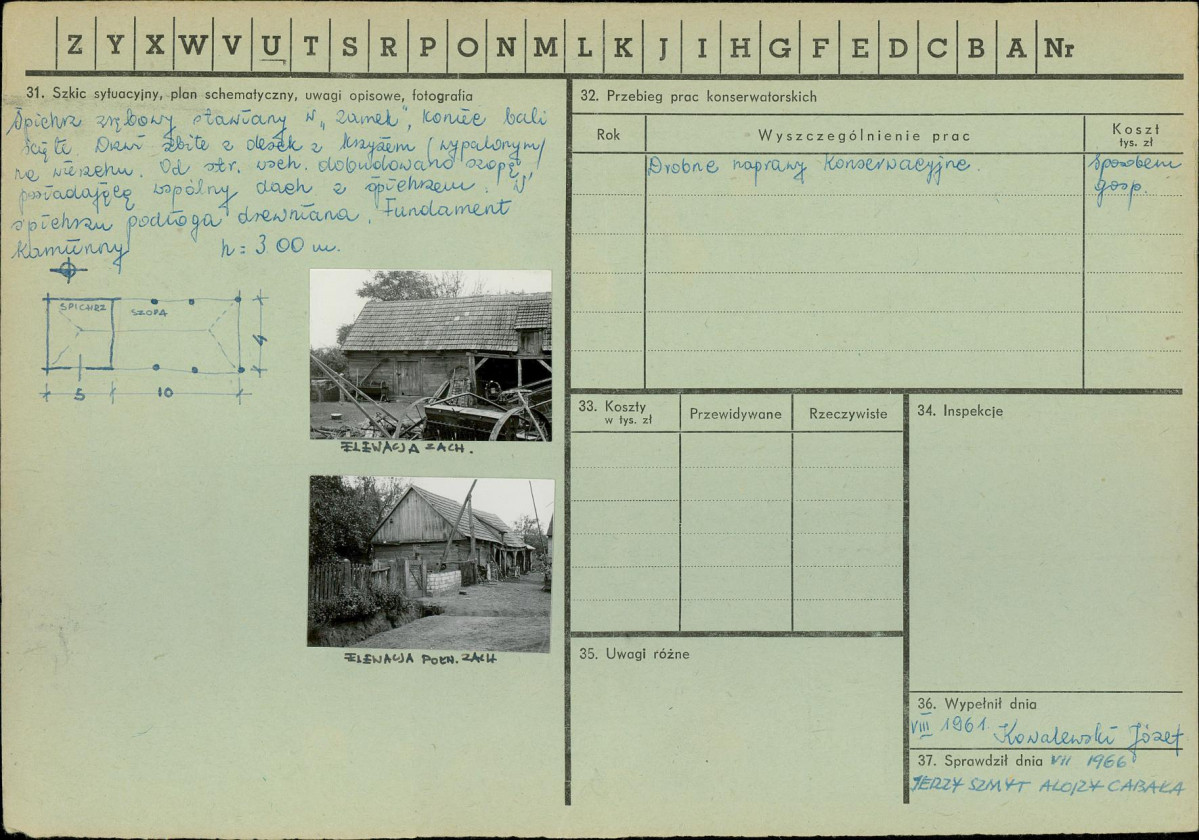 Z Y X W V U T S R P O N M L K J I H G F E D C B A Nr
31. Szkic sytuacyjny, plan schematyczny, uwagi opisowe, fotografia
Spichrz zrębowy stawiany w „zamek", koniec bali
ścięte. Drzwi zbite z desek z krzyżem /wypalonym/
na wierzchu. Od str. wsch. dobudowano szopę,
posiadającą wspólny dach z spichrzem. W
spichrzu podłoga drewniana. Fundament
Kamienny h = 3.00 m.
SPICHRZ SZOPA
4
5 10
ELEWACJA ZACH.
ELEWACJA POŁN. ZACH
32. Przebieg prac konserwatorskich
Rok Wyszczególnienie prac Koszt
tys. zł
Drobne naprawy Konserwacyjne. Sposobem
gosp.
33. Koszty
w tys. zł
Przewidywane Rzeczywiste
34. Inspekcje
35. Uwagi różne
36. Wypełnił dnia
VIII 1961. Kowalewski Józef
37. Sprawdził dnia VII 1966
JERZY SZMYT ALOJZY CABAŁA